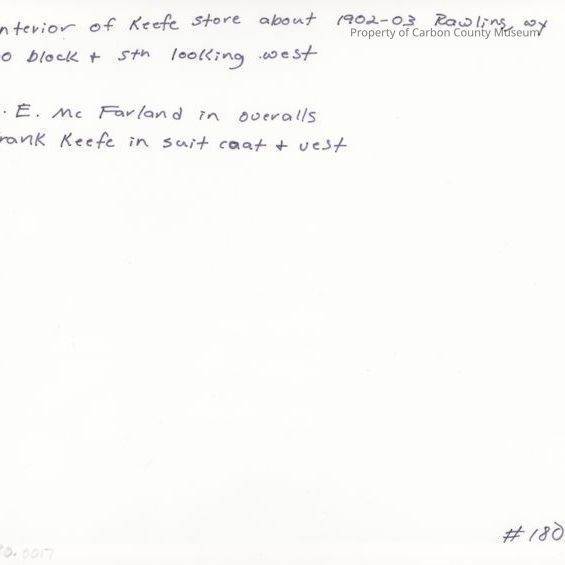 nterior of Keefe store about 1902-03 Rawlins, wy
Property of Carbon County Museum
o block + 5th looking west
. E. Mc Farland in overalls
rank Keefe in suit coat + vest
#180
0.0017